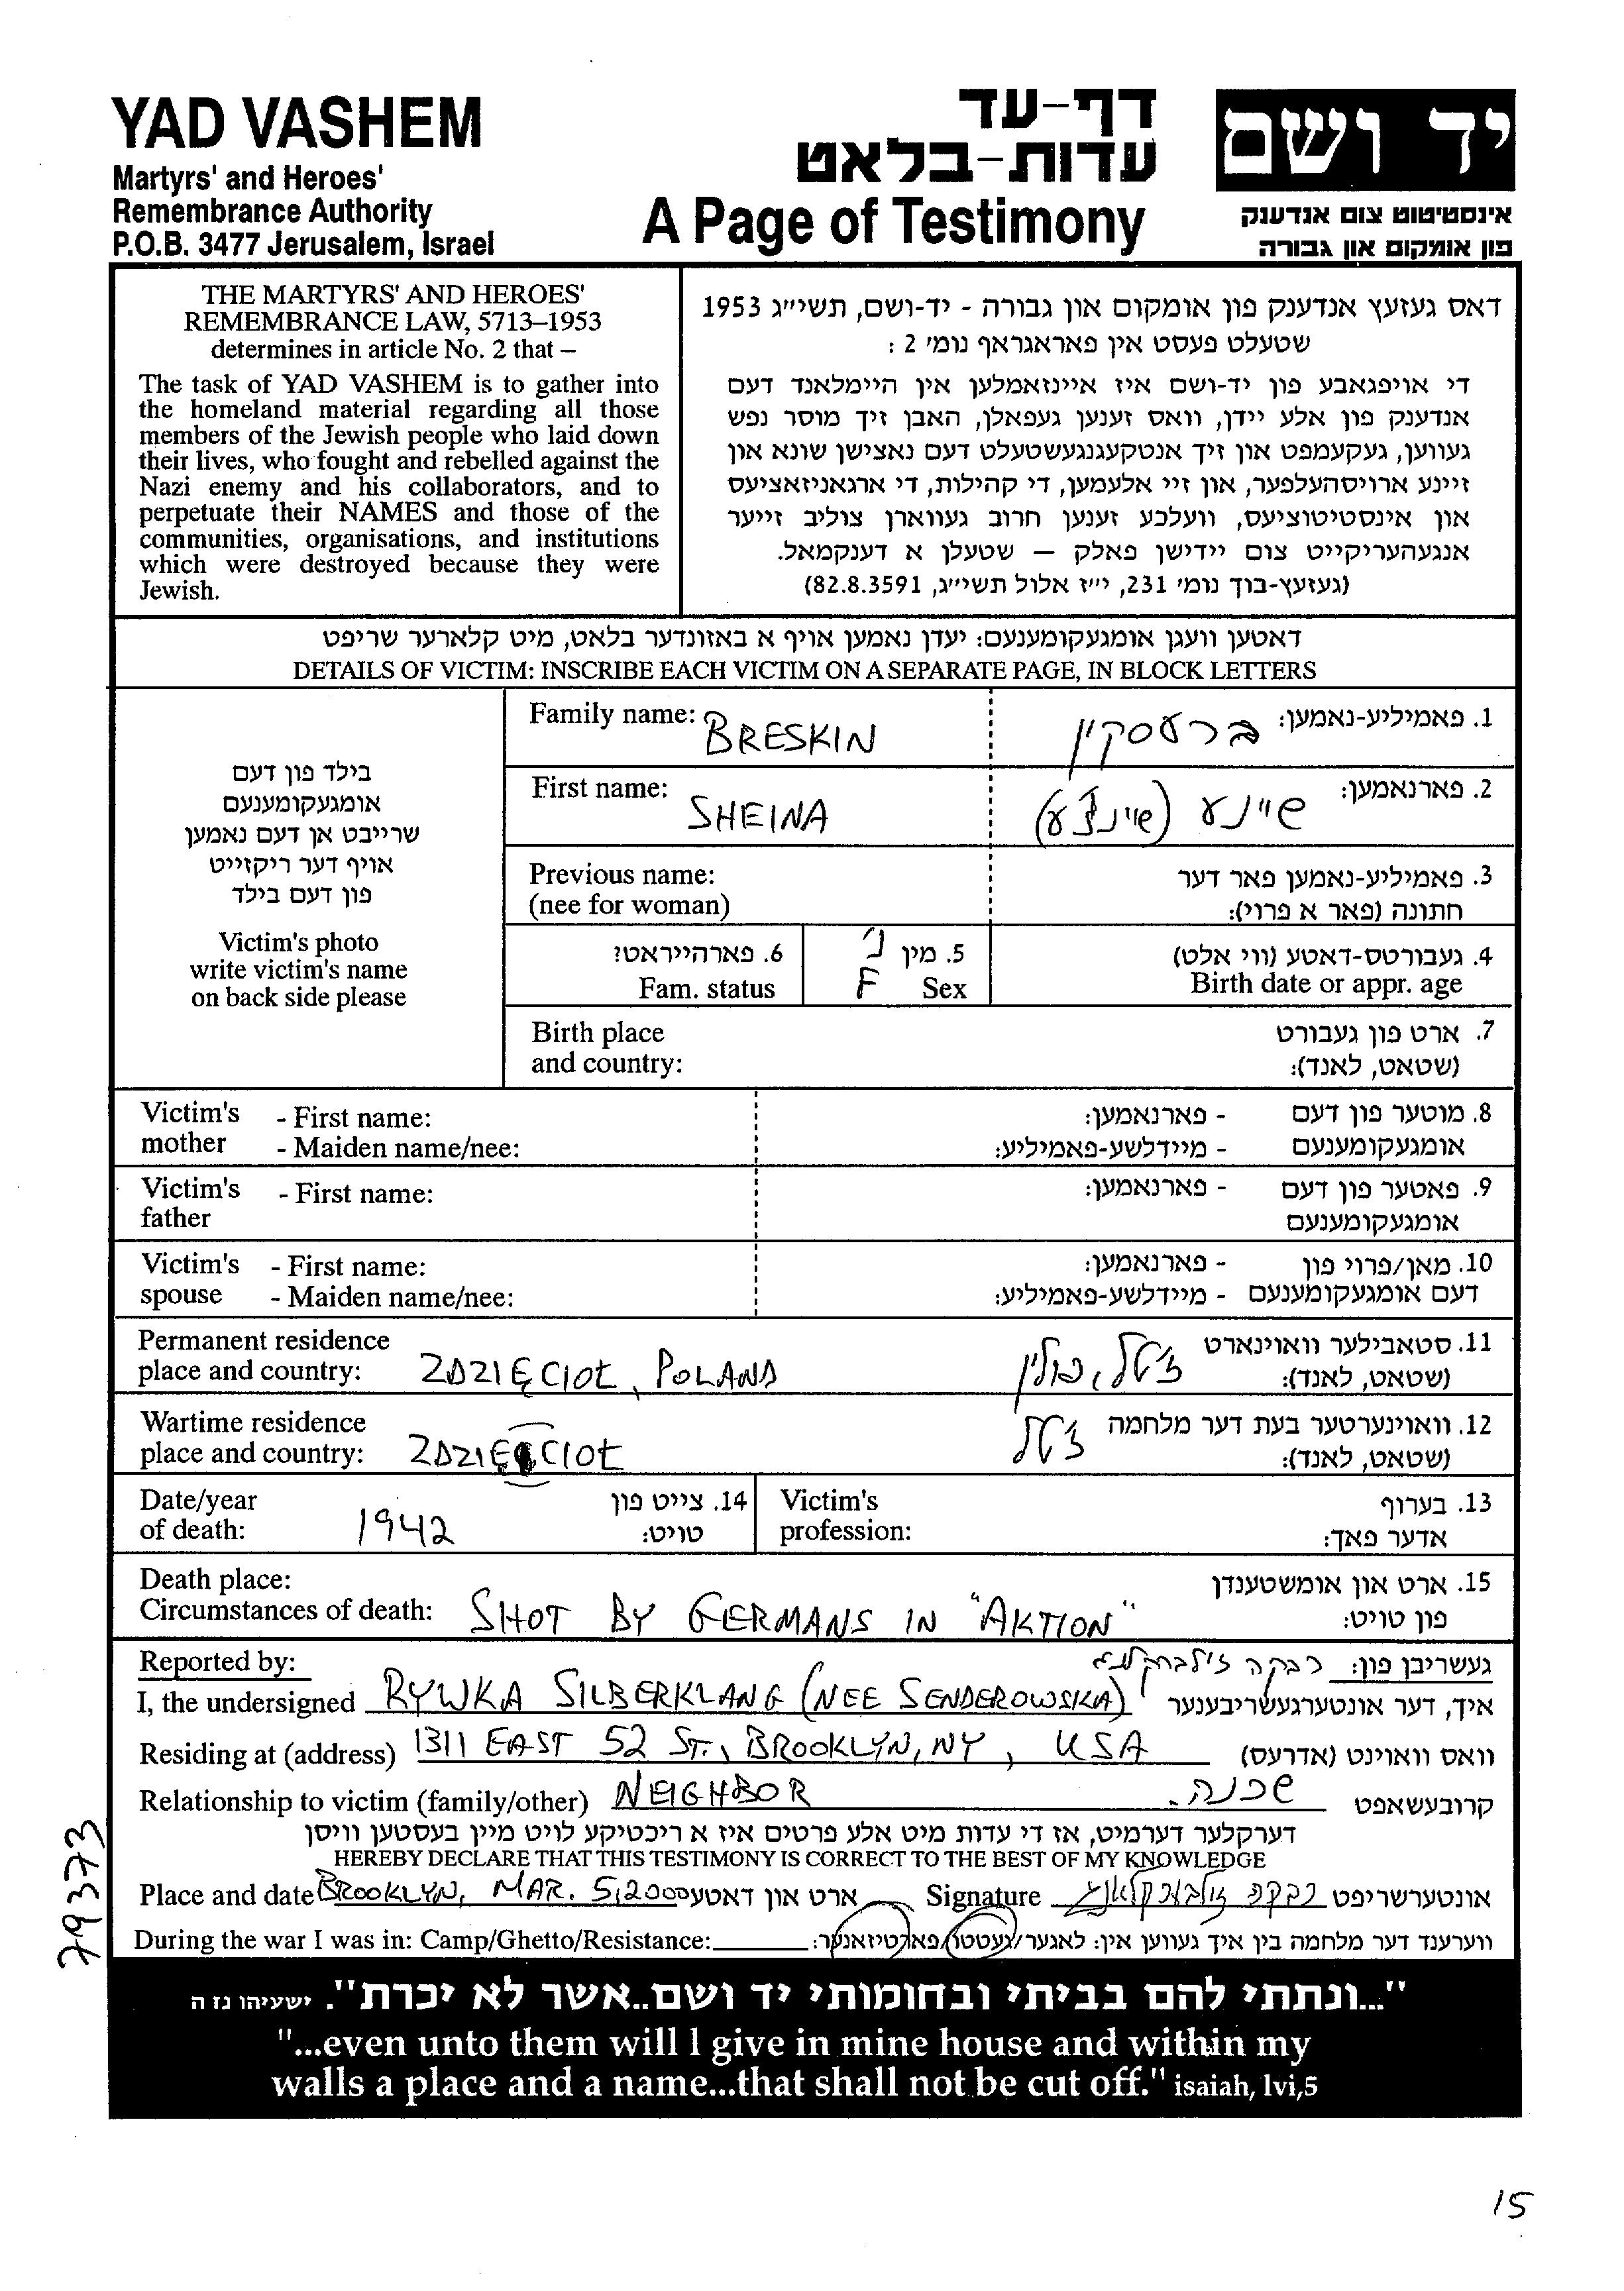 YAD VASHEM
Martyrs' and Heroes'
Remembrance Authority
P.O.B. 3477 Jerusalem, Israel
דף-עד
עדות-בלאט
A Page of Testimony
יד ושם
אינסטיטוט צום אנדענק
פון אומקום און גבורה
THE MARTYRS' AND HEROES'
REMEMBRANCE LAW, 5713–1953
determines in article No. 2 that –
The task of YAD VASHEM is to gather into
the homeland material regarding all those
members of the Jewish people who laid down
their lives, who fought and rebelled against the
Nazi enemy and his collaborators, and to
perpetuate their NAMES and those of the
communities, organisations, and institutions
which were destroyed because they were
Jewish.
דאס געזעץ אנדענק פון אומקום און גבורה - יד-ושם, תשי״ג 1953
שטעלט פעסט אין פאראגראף נומ׳ 2 :
די אויפגאבע פון יד-ושם איז איינזאמלען אין היימלאנד דעם
אנדענק פון אלע יידן, וואס זענען געפאלן, האבן זיך מוסר נפש
געווען, געקעמפט און זיך אנטקעגנגעשטעלט דעם נאצישן שונא און
זיינע ארויסהעלפער, און זיי אלעמען, די קהילות, די ארגאניזאציעס
און אינסטיטוציעס, וועלכע זענען חרוב געווארן צוליב זייער
אנגעהעריקייט צום יידישן פאלק — שטעלן א דענקמאל.
(געזעץ-בוך נומ׳ 231, י״ז אלול תשי״ג, 82.8.3591)
דאטען וועגן אומגעקומענעם: יעדן נאמען אויף א באזונדער בלאט, מיט קלארער שריפט
DETAILS OF VICTIM: INSCRIBE EACH VICTIM ON A SEPARATE PAGE, IN BLOCK LETTERS
בילד פון דעם
אומגעקומענעם
שרייבט אן דעם נאמען
אויף דער ריקזייט
פון דעם בילד
Victim's photo
write victim's name
on back side please
Family name: BRESKIN ברעסקין 1. פאמיליע-נאמען:
First name: SHEINA שיינע (שיינצע) 2. פארנאמען:
Previous name: 3. פאמיליע-נאמען פאר דער
(nee for woman) חתונה (פאר א פרוי):
6. פארהייראט? 5. מין נ 4. געבורטס-דאטע (ווי אלט)
Fam. status F Sex Birth date or appr. age
Birth place 7. ארט פון געבורט
and country: (שטאט, לאנד):
Victim's - First name: - פארנאמען: 8. מוטער פון דעם
mother - Maiden name/nee: - מיידלשע-פאמיליע: אומגעקומענעם
Victim's - First name: - פארנאמען: 9. פאטער פון דעם
father אומגעקומענעם
Victim's - First name: - פארנאמען: 10. מאן/פרוי פון
spouse - Maiden name/nee: - מיידלשע-פאמיליע: דעם אומגעקומענעם
Permanent residence 11. סטאבילער וואוינארט
place and country: ZDZIĘCIOŁ, POLAND זשעטל, פולין (שטאט, לאנד):
Wartime residence 12. וואוינערטער בעת דער מלחמה
place and country: ZDZIĘCIOŁ זשעטל (שטאט, לאנד):
Date/year 14. צייט פון Victim's 13. בערוף
of death: 1942 טויט: profession: אדער פאך:
Death place: 15. ארט און אומשטענדן
Circumstances of death: SHOT BY GERMANS IN "AKTION" פון טויט:
Reported by: געשריבן פון: רבקה זילברקלאנג
I, the undersigned RYWKA SILBERKLANG (NEE SENDEROWSKA) איך, דער אונטערגעשריבענער
Residing at (address) 1311 EAST 52 ST., BROOKLYN, NY, USA וואס וואוינט (אדרעס)
Relationship to victim (family/other) NEIGHBOR שכנה. קרובעשאפט
דערקלער דערמיט, אז די עדות מיט אלע פרטים איז א ריכטיקע לויט מיין בעסטען וויסן
HEREBY DECLARE THAT THIS TESTIMONY IS CORRECT TO THE BEST OF MY KNOWLEDGE
Place and date BROOKLYN, MAR. 5, 2000 ארט און דאטע Signature רבקה זילברקלאנג אונטערשריפט
During the war I was in: Camp/Ghetto/Resistance: ווערענד דער מלחמה בין איך געווען אין: לאגער/געטטו/פארטיזאנער:
"...ונתתי להם בביתי ובחומותי יד ושם..אשר לא יכרת". ישעיהו נז ה
"...even unto them will I give in mine house and within my
walls a place and a name...that shall not be cut off." isaiah, lvi,5
79373
15